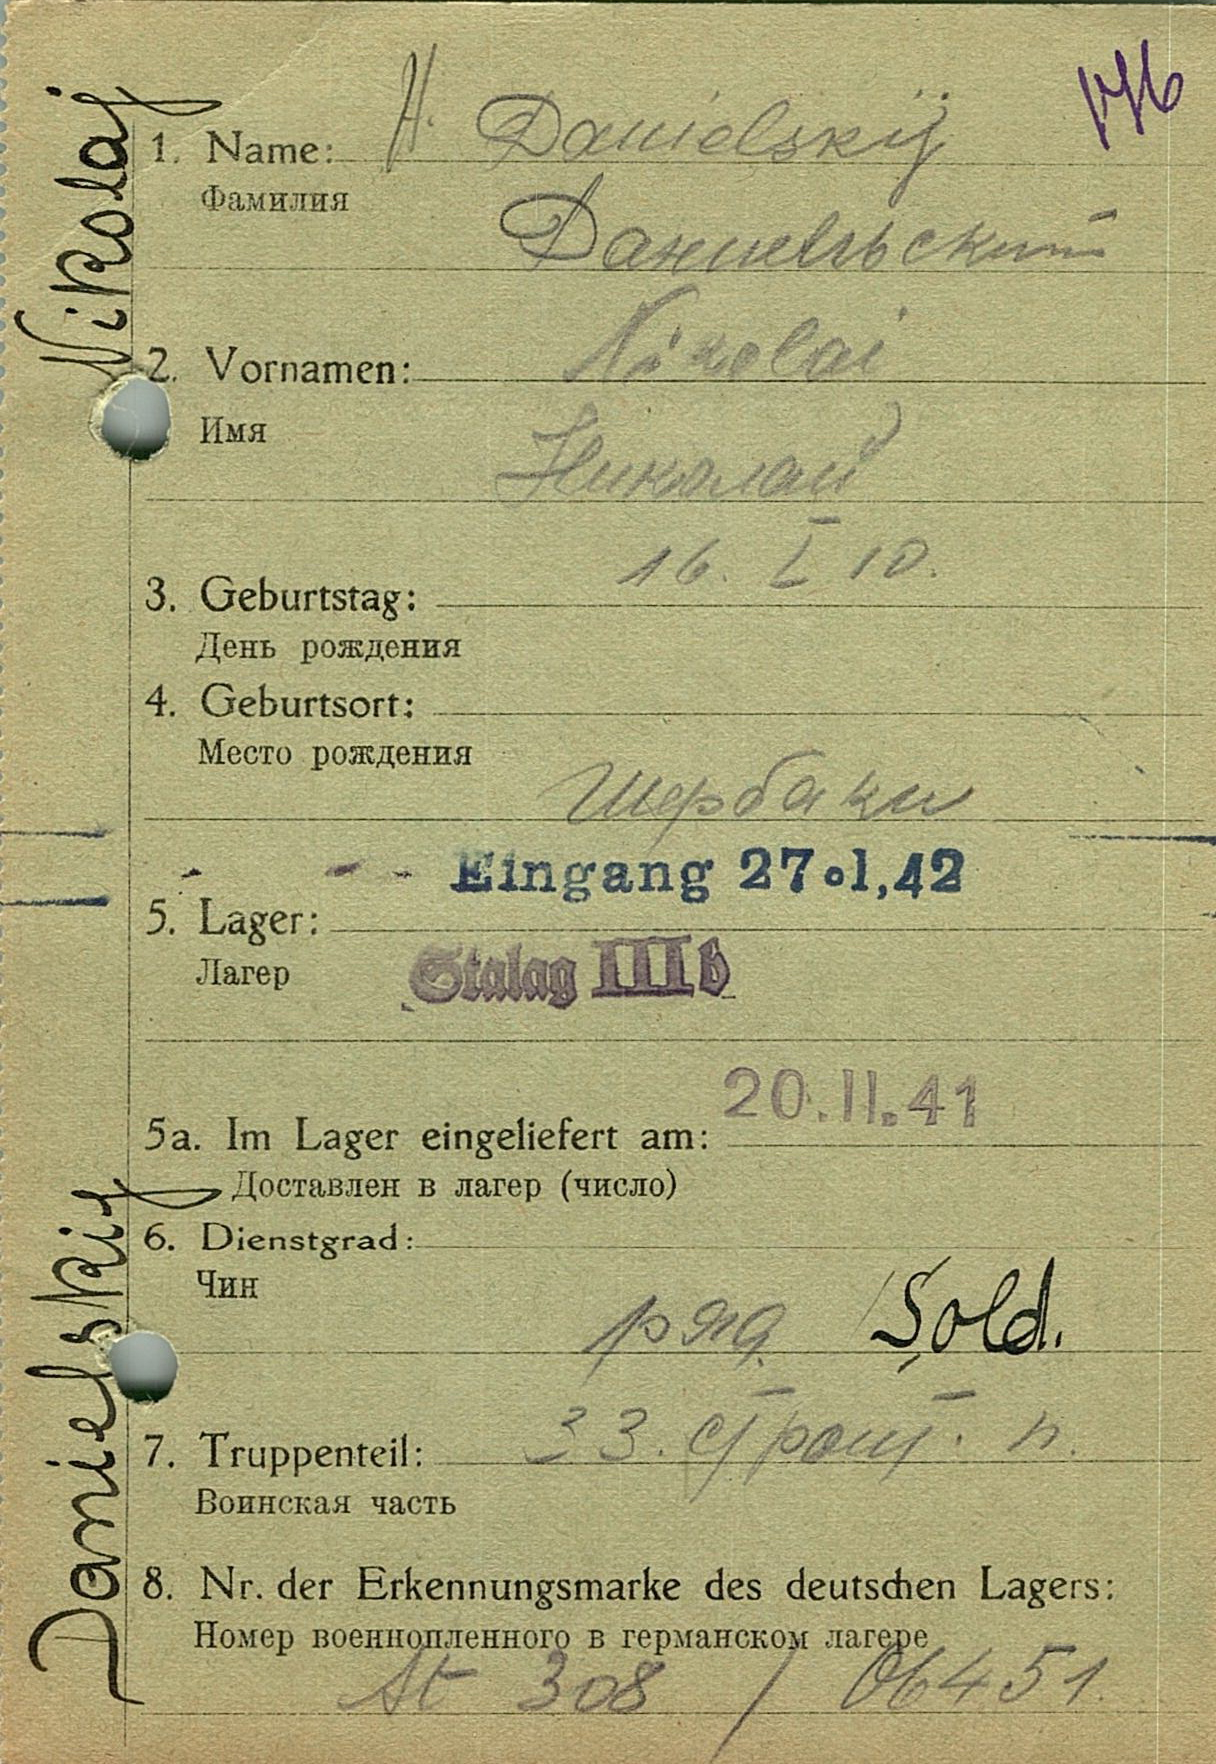 Nikolaj
Danielskij
1. Name: H. Danielskij
Фамилия
Даниельский
2. Vornamen: Nikolai
Имя
Николай
16. I 10.
3. Geburtstag:
День рождения
4. Geburtsort:
Место рождения
Щербаки
Eingang 27.1.42
5. Lager:
Лагер
Stalag IIIb
20.11.41
5a. Im Lager eingeliefert am:
Доставлен в лагер (число)
6. Dienstgrad:
Чин
ряд. Sold.
7. Truppenteil: 33. строит. п.
Воинская часть
8. Nr. der Erkennungsmarke des deutschen Lagers:
Номер военнопленного в германском лагере
St 308 / 06451.